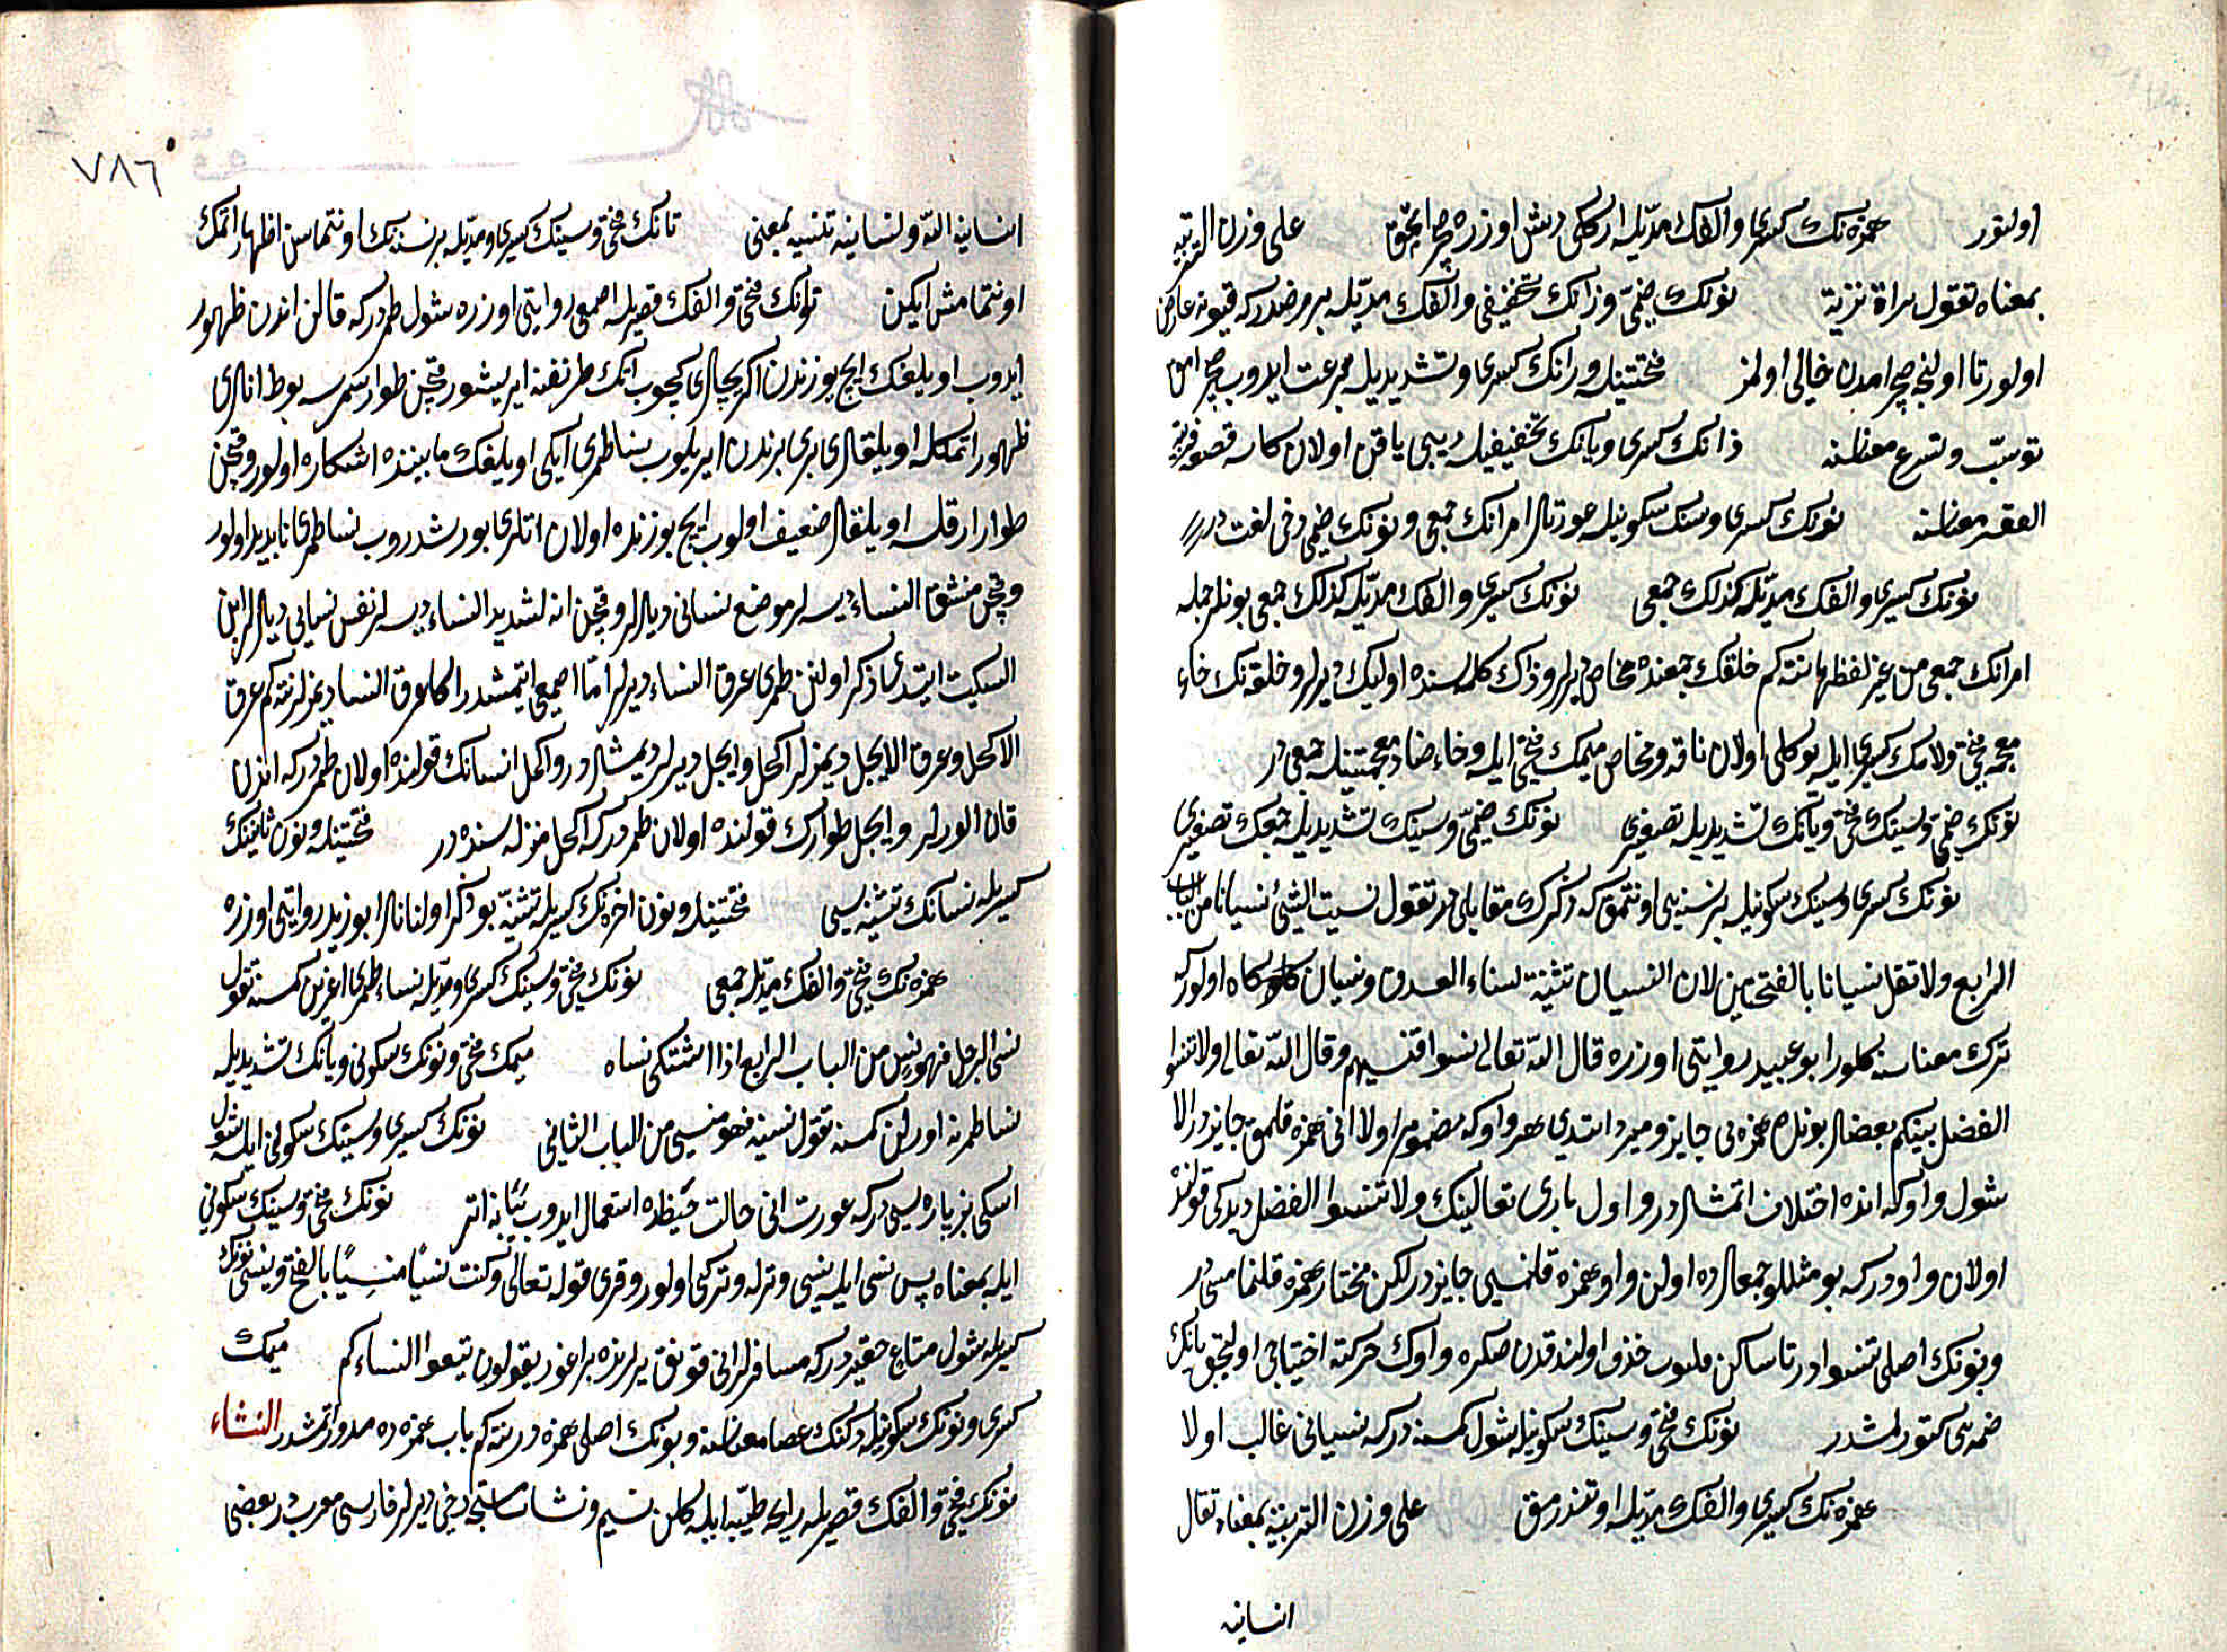 اولنور همزه نك كسرى والفك مدّيله اركك ديشى اوزره صچرامق على وزن التربيه
بمعناه تقول مراة نزية نونك ضمّى وزانك تخفيفى والفك مدّيله بر مرضدركه قيونه عارض
اولور تا اولنجه صچرامدن خالى اولمز فتحتينله ورانك كسرى وتشديديله سرعت ايدوب صچرامق
توثّب وتسرع معناسنه زانك كسرى ويانك تخفيفيله ديبى ياقين اولان كاسه قصعة قريبة
القعر معناسنه نونك كسرى وسينك سكونيله عورتلر امرانك جمعى ونونك ضمى دخى لغت در
نونك كسرى والفك مدّيله كذلك جمعى نونك كسرى والفك مدّيله كذلك جمعى بونلر جمله
امرانك جمعى من غير لفظها نته كم خلفك جمعنده مخاض ديرلر وذاك كلمه سنده اوليك ديرلر وخلفه نك خاء
معجمه فتحى ولامك كسرى ايله يوكلى اولان ناقه ومخاض ميمك فتحى ايله وخاء وضاد معجمتينله جمعى در
نونك ضمى وسينك فتحى ويانك تشديديله تصغيرى نونك ضمّى وسينك تشديديله جمعك تصغيرى
نونك كسرى وسينك سكونيله بر نسنه يى اونتمق كه ذكرك مقابلى در تقول نسيت الشئ نسيانا من الباب
الرابع ولا تقل نسيانا بالفتحتين لان النسيان تثنية نساء العدق ونسيان كاه اولوركه
ترك معناسنه كلور ابو عبيد روايتى اوزره قال اللّه تعالى نسوا فنسيهم وقال اللّه تعالى ولا تنسوا
الفضل بينكم بعضلر بونلره همزه يى جايز ومبرد ايتدى هر واوكه مضموم اولا انى همزه قلمق جايزدر الا
شول واوكه انده اختلاف اتمشلردر واول بارى تعالينك ولا تنسوا الفضل ديدكى قولنده
اولان واودركه بو مثللو جمعلرده اولن واو همزه قلنمسى جايزدر لكن مختار همزه قلنمامسى در
وبونك اصلى تنسيوا در تا ساكن قلنوب حذف اولندقدن صكره واوك حركته احتياجى اولمجق يانك
ضمه سى كتورلمشدر نونك فتحى وسينك سكونيله شول كمسنه دركه نسيانى غالب اولا
همزه نك كسرى والفك مدّيله اونتدرمق على وزن التربية بمعناه تقال
انسانيه
٧٨٦
انسانيه اللّه ونسانيه تنسيه بمعنى تانك فتحى وسينك كسرى ومدّيله بر نسنه نك اونتماسن اظهار اتمك
اونتمامش ايكن نونك فتحى والفك قصريله اصمعى روايتى اوزره شول طمردركه قالن اندن ظهور
ايدوب اويلغك ايچ يوزندن اكريجه لرى كچوب انك طرنغنه ايريشور قچن طوار سمرسه بوط اتلرى
ظهور اتمكله اويلقلرى برى برندن ايريلوب نسا طمرى ايكى اويلغك مابيننده اشكاره اولور وقچن
طوار ارقلسه اويلقلر ضعيف اولوب ايچ يوزنده اولان اتلرى بورشدروب نسا طمرى نابديد اولور
وقچن منشق النساء ديسه لر موضع نسانى ديلرلر وقچن انه لشديد النساء ديسه لر نفس نسايى ديلرلر ابن
السكيت ايتدى ذكر اولنن طمرى عرق النساء ديرلر امّا اصمعى ايتمشدر اكا عرق النسا ديمزلر نته كم عرق
الاكحل وعرق الابجل ديمزلر اكحل وابجل ديرلر ديمشلردر واكحل انسانك قولنده اولان طمردركه اندن
قان الورلر وابجل طوارك قولنده اولان طمردركه اكحل منزله سنده در فتحتينله ونون ثانينك
كسريله نسانك تثنيه سى فتحتينله ونون اخره نك كسريله تثنيّه بو ذكر اولنانلر ابو زيد روايتى اوزره
همزه نك فتحى والفك مدّيله جمعى نونك فتحى وسينك كسرى ومدّيله نساء طمرى اغرين كمسنه تقول
نسى الرجل فهو نسٍ من الباب الرابع اذا اشتكى نساه ميمك فتحى ونونك سكونى ويانك تشديديله
نسا طمرنه اورلن كمسنه تقول نسيته فهو منسى من الباب الثانى نونك كسرى وسينك سكونى ايله شول
اسكى بز پاره سى دركه عورت انى حالت حيضده استعمال ايدوب يبانه اتر نونك فتحى وسينك سكونى
ايله بمعناه پس نسى ايله نسى وترله وتركى اولور وقرى قوله تعالى وكنت نسيًا منسيًا بالفتح ونسى نونك
كسريله شول متاع حقيردركه مسافرلر انى قونق يرلرنده براغور يقولون تتبعوا انساءكم ميمك
كسرى ونونك سكونيله دكنك عصا معناسنه وبونك اصلى همزه در نته كم باب همزه ده مرور اتمشدر النشاء
نونك فتحى والفك قصريله رايحه طيّبه ايله كلن نسيم ونشاسته دخى ديرلر فارسى معرب در بعضى